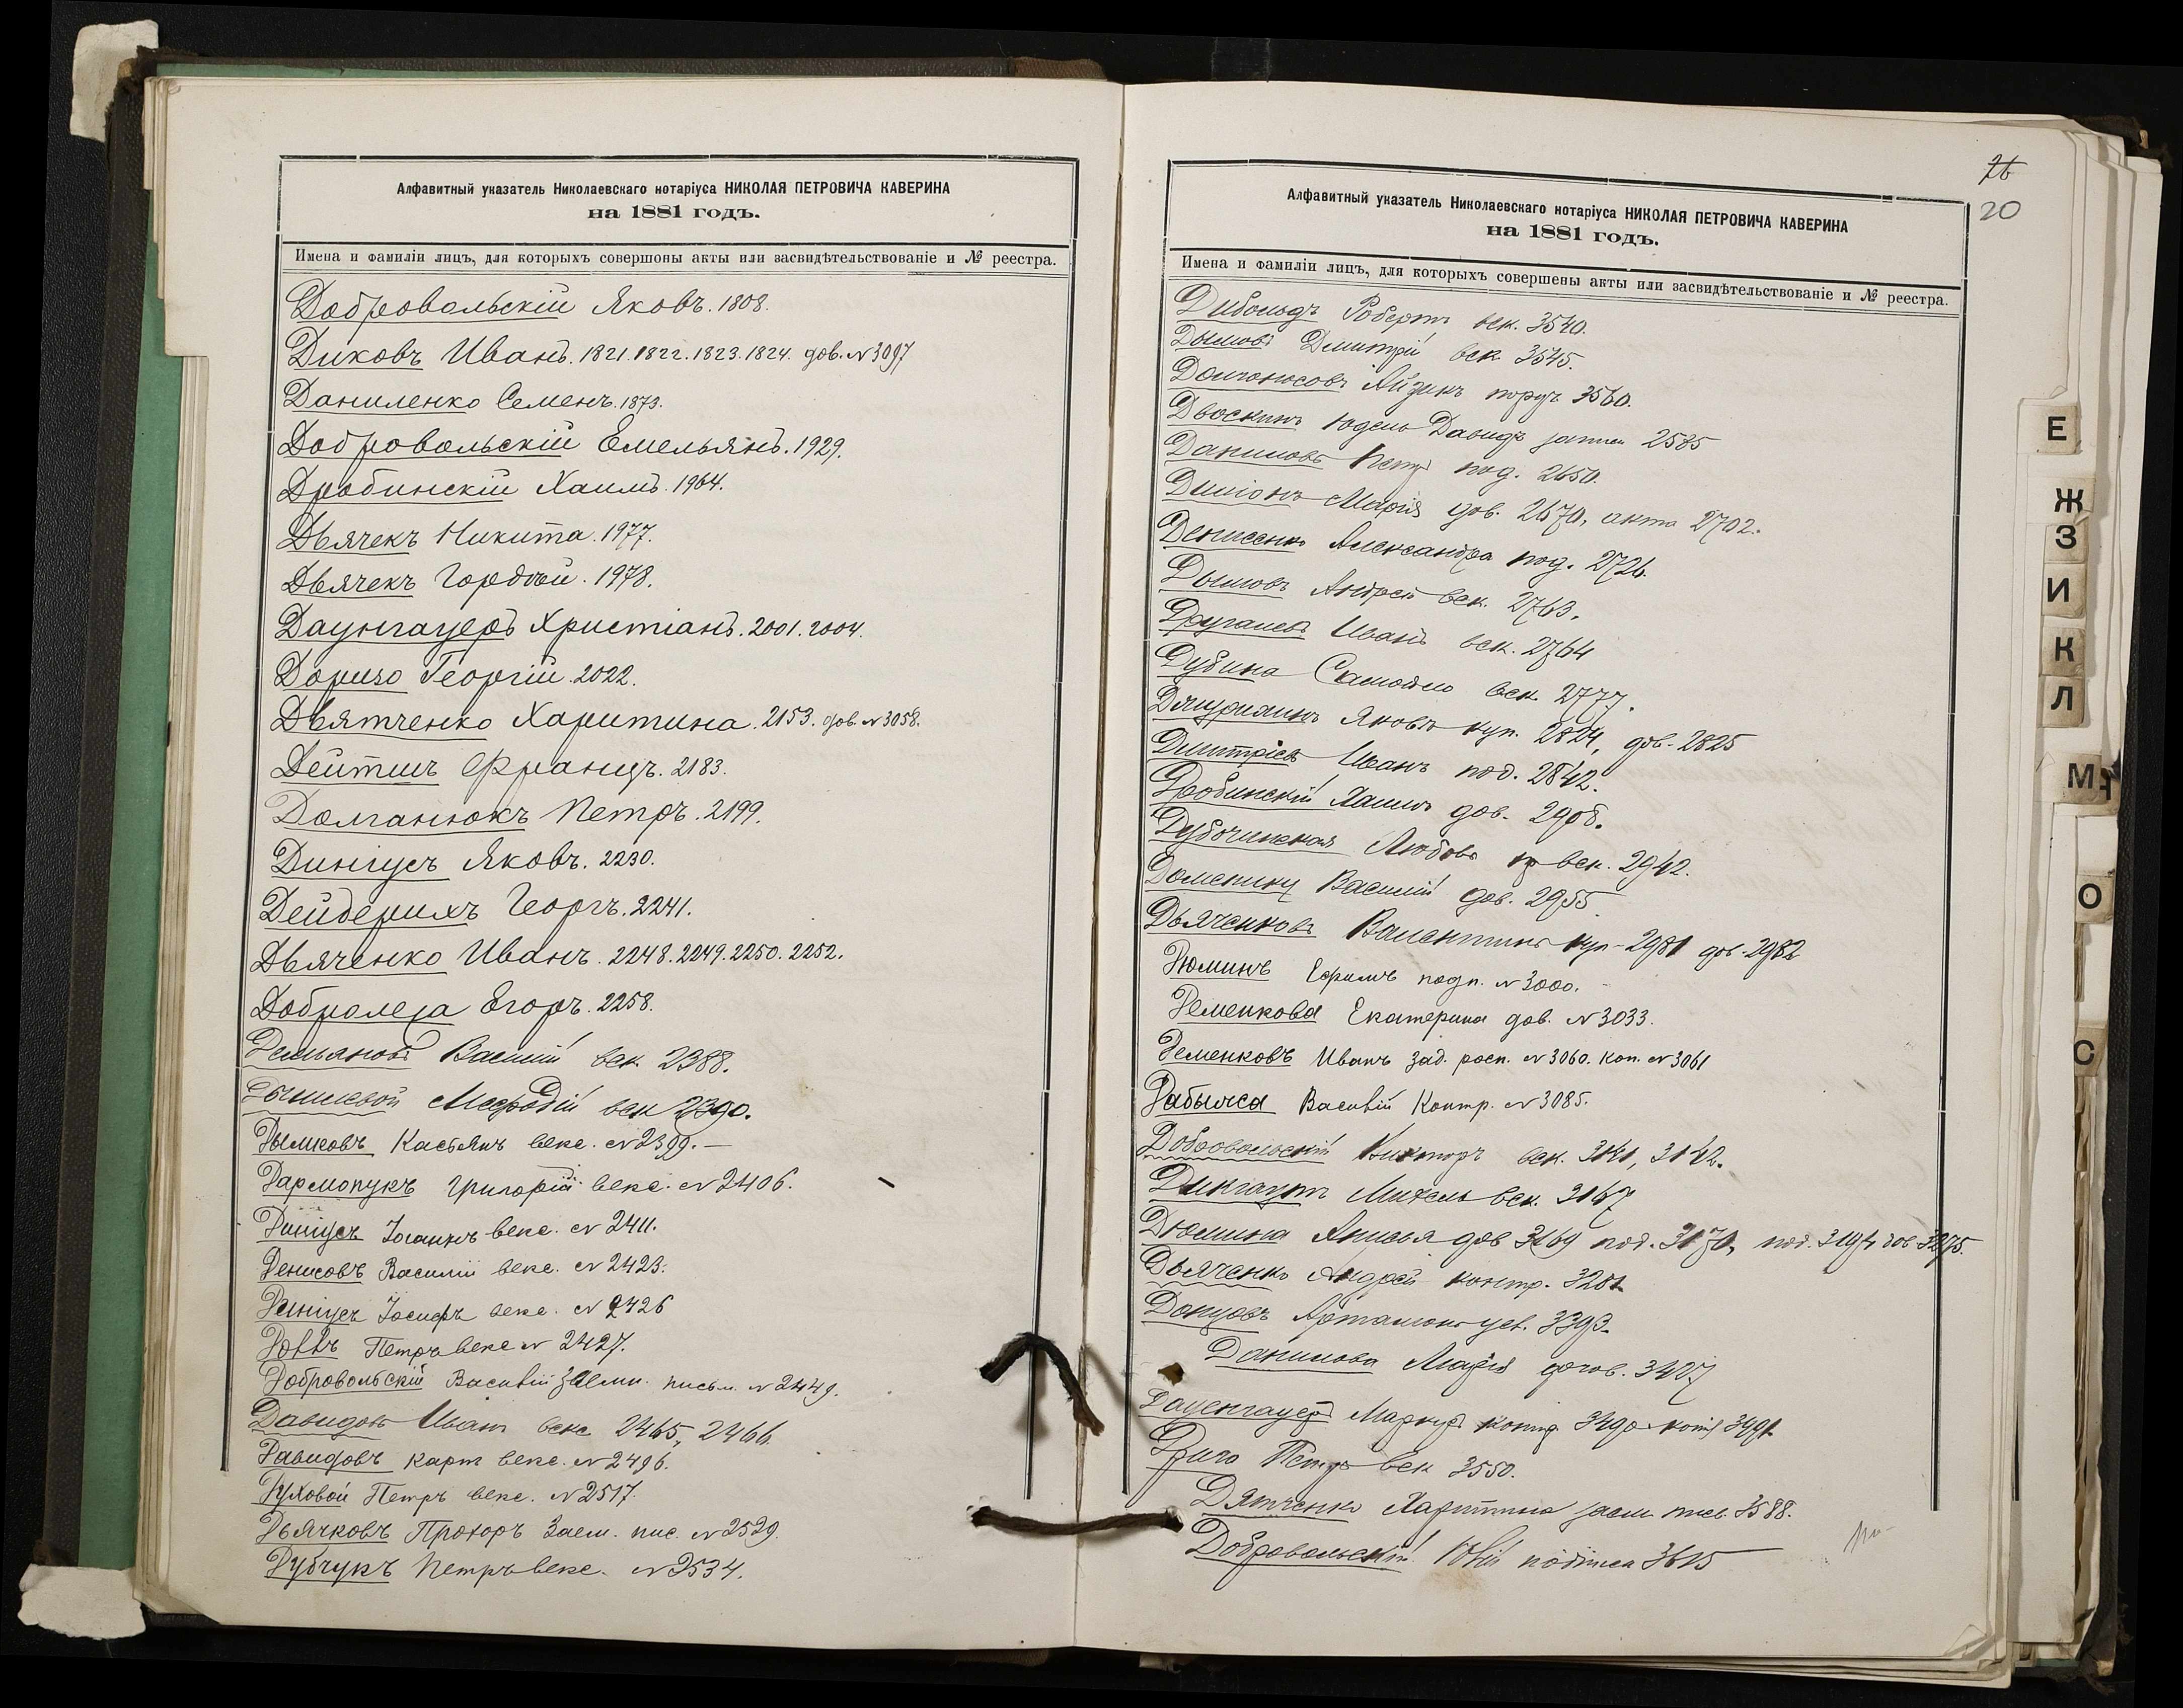 Алфавитный указатель Николаевскаго нотаріуса НИКОЛАЯ ПЕТРОВИЧА КАВЕРИНА
на 1881 годъ.
Имена и фамиліи лицъ, для которыхъ совершоны акты или засвидѣтельствованіе и № реестра.
Добровольскій Яковъ. 1808.
Диковъ Иванъ. 1821. 1822. 1823. 1824. дов. № 3097
Даниленко Семенъ. 1873.
Добровольскій Емельянъ. 1929.
Дробинскій Хаимъ. 1964.
Дьячекъ Никита. 1977.
Дьячекъ Гордѣй. 1978.
Даунгауеръ Христіанъ. 2001. 2004.
Доризо Георгій. 2022.
Дьятченко Харитина. 2153. дов. № 3058.
Дейтшъ Францъ. 2183.
Долганюкъ Петръ. 2199.
Дингусъ Яковъ. 2230.
Дейдерихъ Георгъ. 2241.
Дьяченко Иванъ. 2248. 2249. 2250. 2252.
Добролежа Егоръ. 2258.
Демьяновъ Василій век. 2388.
Мефодій век 2390.
Дымковъ Касьянъ векс. № 2399. —
Дармопукъ Григорій векс. № 2406.
Дингусъ Іоганнъ векс. № 2411.
Денисовъ Василій векс. № 2423.
Дингусъ Іосифъ векс. № 2426
Петръ векс № 2427.
Добровольскій Василій заемн. письм. № 2449.
Давидовъ Иванъ векс 2465, 2466
Давидовъ Карпъ векс. № 2496.
Духовой Петръ векс. № 2517.
Дьячковъ Прохоръ Заем. пис. № 2529.
Дубчукъ Петръ векс. № 2534.
26
20
Алфавитный указатель Николаевскаго нотаріуса НИКОЛАЯ ПЕТРОВИЧА КАВЕРИНА
на 1881 годъ.
Имена и фамиліи лицъ, для которыхъ совершены акты или засвидѣтельствованіе и № реестра.
Дибольдъ Робертъ век. 3540.
Дымовъ Дмитрій век 3545.
Долгоносовъ Айзикъ 3560.
Двоскинъ Юдель Давидъ 2585
Даниловъ Петръ под. 2650.
Марія дов. 2670, акта 2702.
Денисенко Александра под. 2726.
Дымовъ Андрей век. 2763.
Иванъ век. 2764
Дубина Самойло век. 2777.
Яковъ куп. 2824, дов. 2825
Дмитріевъ Иванъ под. 2842.
Дробинскій Хаимъ дов. 2908.
Дубочинская Любовь век. 2942.
Василій дов. 2955.
Дьяченкова Валентина куп 2981 дов. 2982
Дюминъ Ефимъ подп. № 3000.
Деменкова Екатерина дов. № 3033.
Деменковъ Иванъ зад. росп. № 3060. коп. № 3061
Дабычса Василій Контр. № 3085.
Добровольскій Викторъ век. 3141, 3142.
Михель век. 3167
Дюмина Анисья дов 3169 под. 3170,
Дьяченко Андрей контр. 3281
Донцовъ Артамонъ 3393.
Данилова Марія догов. 3427
Дауенгауеръ Маркусъ контр. 3490 3491
Петръ век 3550.
Дятченко Харитина заем. пись. 3588.
Добровольскій подписи 3615
Е
Ж
З
И
К
Л
М
О
С